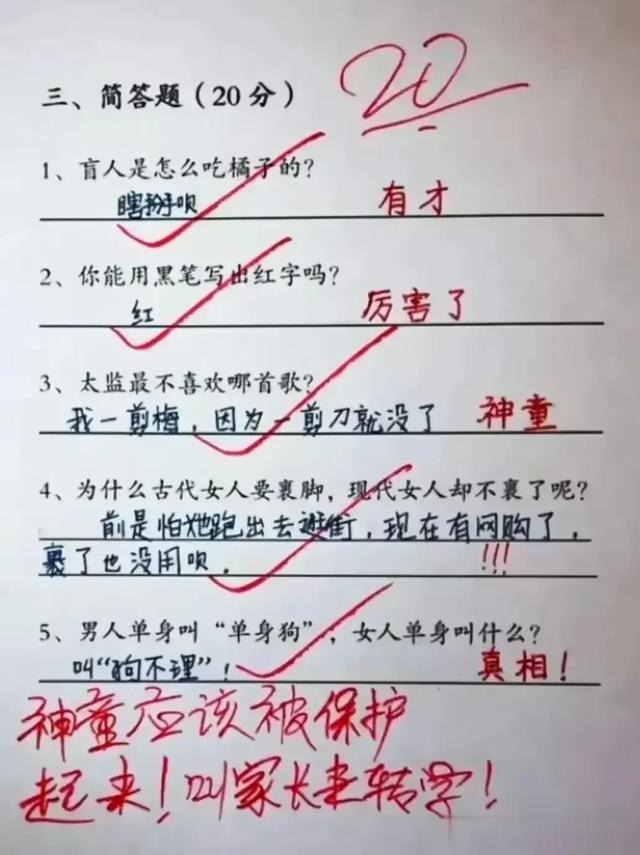 三、简答题（20分）
20
1、盲人是怎么吃橘子的？
瞎掰呗
有才
2、你能用黑笔写出红字吗？
红
厉害了
3、太监最不喜欢哪首歌？
我一剪梅，因为一剪刀就没了
神童
4、为什么古代女人要裹脚，现代女人却不裹了呢？
前是怕她跑出去逛街，现在有网购了，
裹了也没用呗。
!!!
5、男人单身叫“单身狗”，女人单身叫什么？
叫“狗不理”！
真相！
神童应该被保护
起来！叫家长来转学！